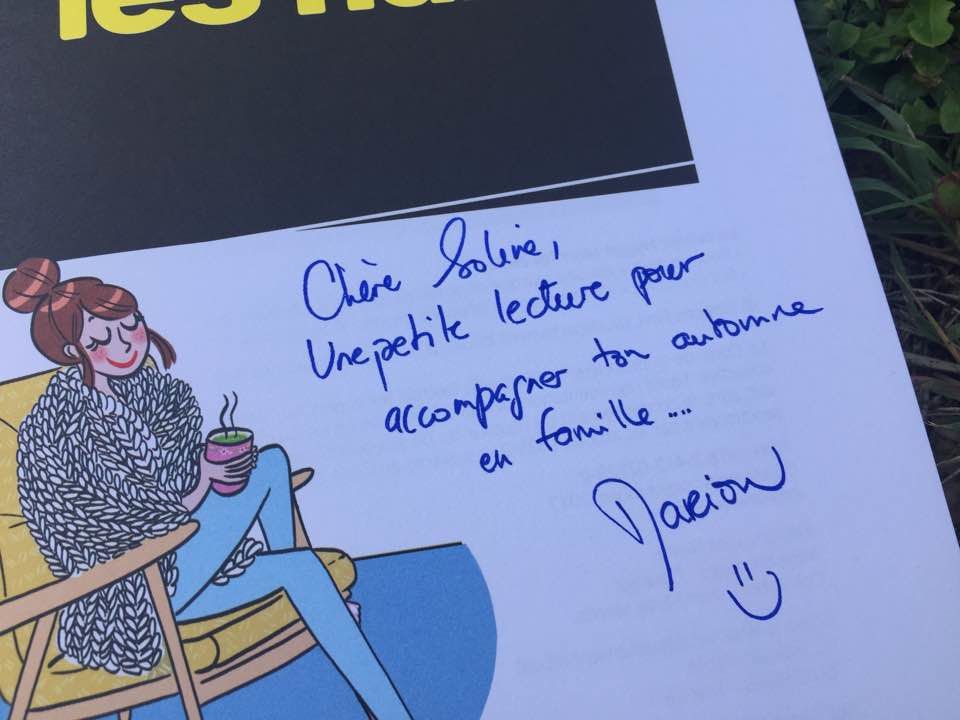 les
Chère Soline,
Une petite lecture pour
accompagner ton automne
en famille....
Marion